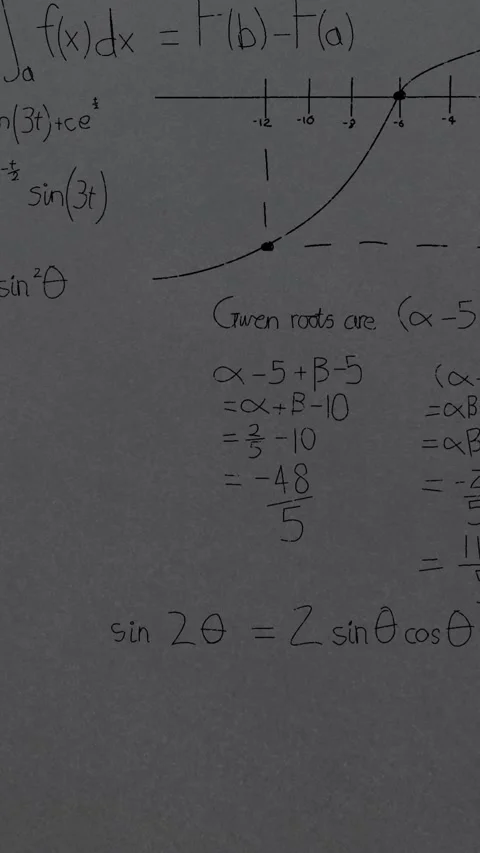 ∫ₐ f(x)dx = F(b)-F(a)
n(3t)+ce^
-12 -10 -8 -6 -4
-t/2 sin(3t)
sin²θ
Given roots are (α-5
α-5+β-5
=α+β-10
=2/5-10
=-48/5
(α-
=αβ
=αβ
=-2/5
=11
sin 2θ = 2 sinθ cosθ